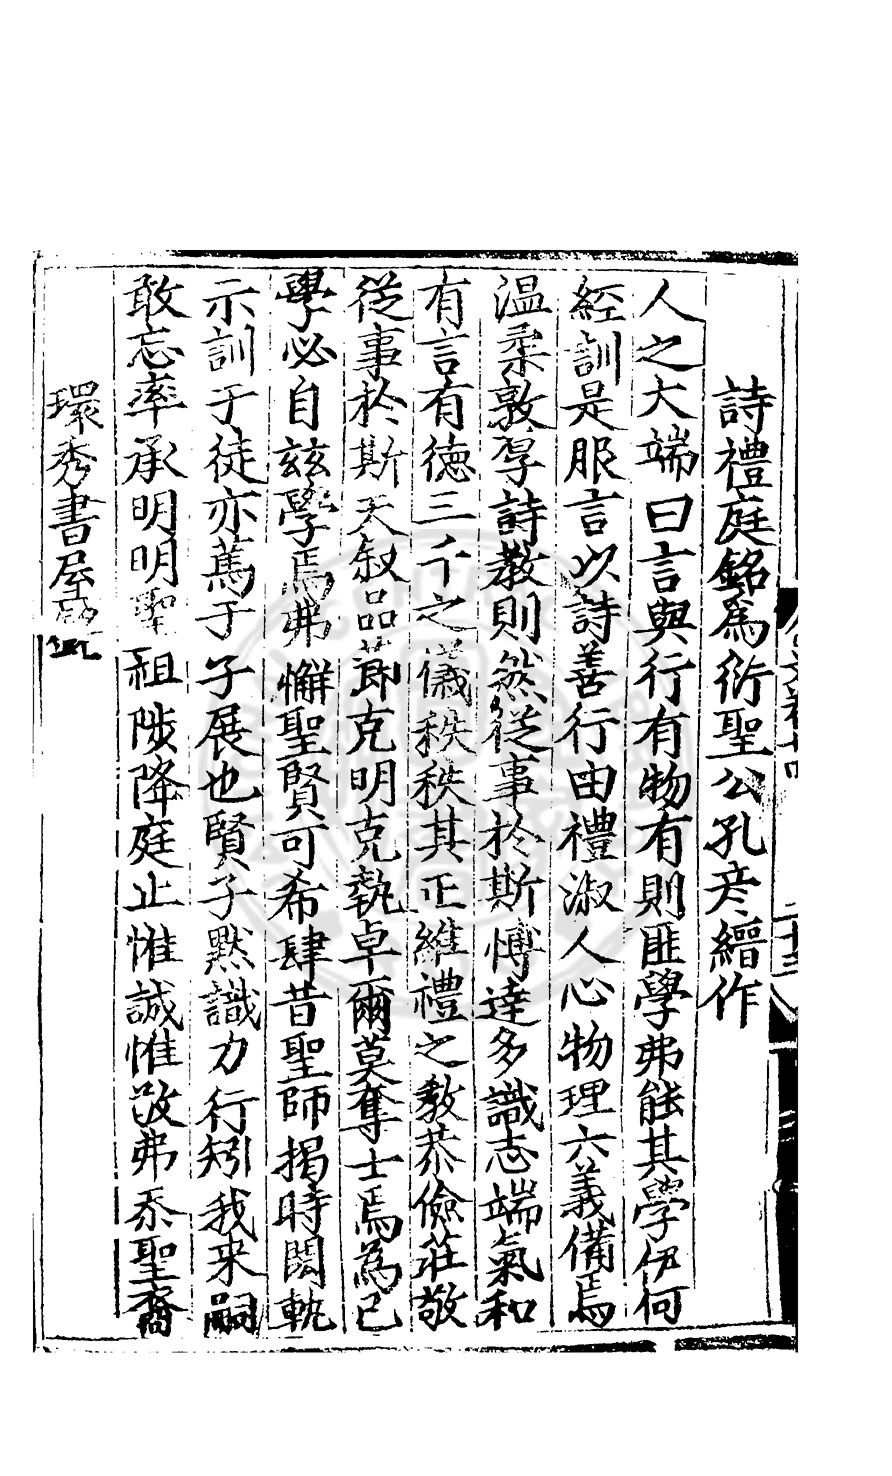 詩禮庭銘為衍聖公孔彦縉作
人之大端曰言與行有物有則匪學弗能其學伊何
經訓是服言以詩善行由禮淑人心物理六義備焉
溫柔敦厚詩教則然從事於斯博達多識志端氣和
有言有德三千之儀秩秩其正維禮之教恭儉莊敬
從事於斯天叙品節克明克執卓爾莫奪士焉為己
學必自玆學焉弗懈聖賢可希肆昔聖師揭時閎軌
示訓于徒亦篤于子展也賢子默識力行矧我来嗣
敢忘率承明明聖祖陟降庭止惟誠惟敬弗忝聖裔
環秀書屋銘
二十三